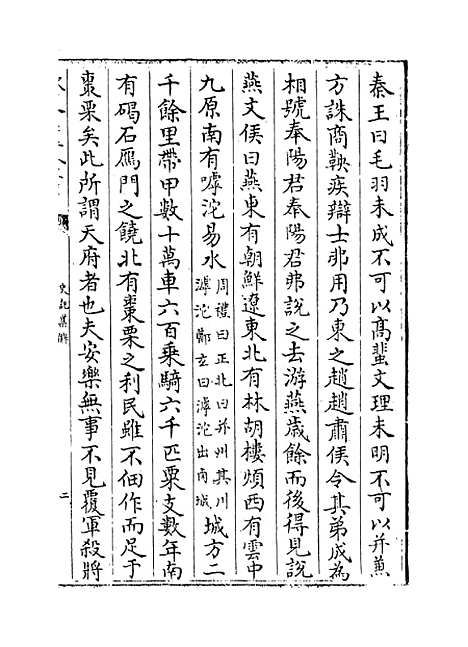 秦王曰毛羽未成不可以髙蜚文理未明不可以并兼
方誅商鞅疾辯士弗用乃東之趙趙肅侯令其弟成為
相號奉陽君奉陽君弗說之去游燕歳餘而後得見說
燕文侯曰燕東有朝鮮遼東北有林胡樓煩西有雲中
九原南有嘑沱易水周禮曰正北曰并州其川滹沱鄭𤣥曰滹沱出鹵城城方二
千餘里帶甲數十萬車六百乗騎六千匹粟支數年南
有碣石鴈門之饒北有棗栗之利民雖不佃作而足于
棗栗矣此所謂天府者也夫安樂無事不見覆軍殺將
史記集解
二